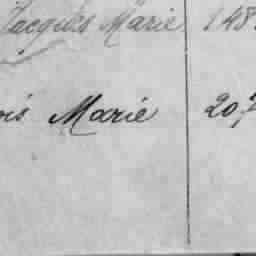 Jacques Marie 148
ois Marie 207